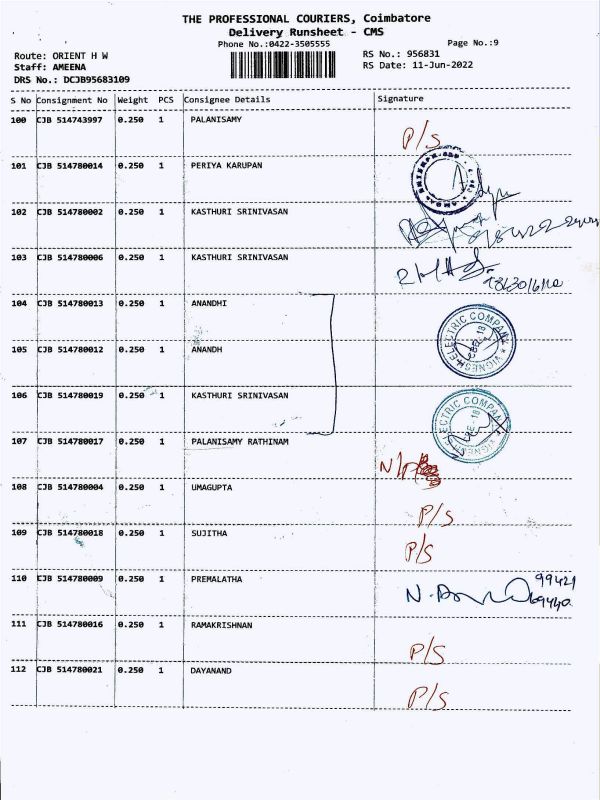 THE PROFESSIONAL COURIERS, Coimbatore
Delivery Runsheet - CMS
Phone No.:0422-3505555
Page No.:9
Route: ORIENT H W
RS No.: 956831
Staff: AMEENA
RS Date: 11-Jun-2022
DRS No.: DCJB95683109
S No Consignment No Weight PCS Consignee Details Signature
100 CJB 514743997 0.250 1 PALANISAMY P/S
101 CJB 514780014 0.250 1 PERIYA KARUPAN
102 CJB 514780002 0.250 1 KASTHURI SRINIVASAN
103 CJB 514780006 0.250 1 KASTHURI SRINIVASAN
104 CJB 514780013 0.250 1 ANANDHI VIGNESH ELECTRIC COMPANY
105 CJB 514780012 0.250 1 ANANDH
106 CJB 514780019 0.250 1 KASTHURI SRINIVASAN VIGNESH ELECTRIC COMPANY
107 CJB 514780017 0.250 1 PALANISAMY RATHINAM
108 CJB 514780004 0.250 1 UMAGUPTA P/S
109 CJB 514780018 0.250 1 SUJITHA P/S
110 CJB 514780009 0.250 1 PREMALATHA 99421
69440
111 CJB 514780016 0.250 1 RAMAKRISHNAN P/S
112 CJB 514780021 0.250 1 DAYANAND P/S